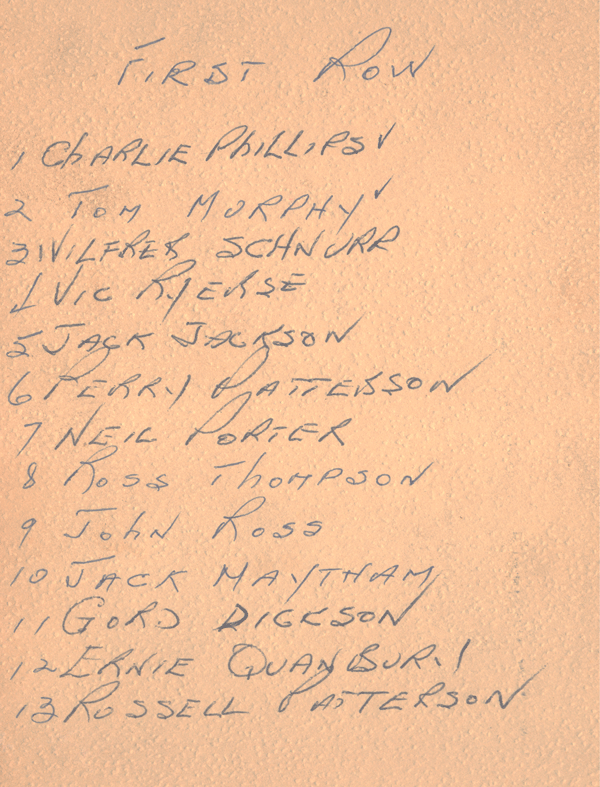 First Row
1 Charlie Phillips ✓
2 Tom Murphy ✓
3 Wilfrer Schnurr
4 Vic Ryerse
5 Jack Jackson
6 Perry Patterson
7 Neil Porter
8 Ross Thompson
9 John Ross
10 Jack Maytham
11 Gord Dickson
12 Ernie Quanbury
13 Russell Patterson